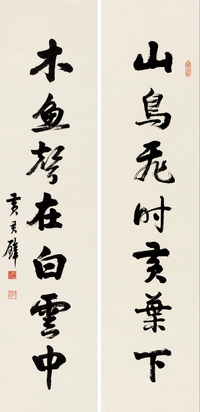 山鳥飛时黄葉下
木魚聲在白雲中
黄君璧